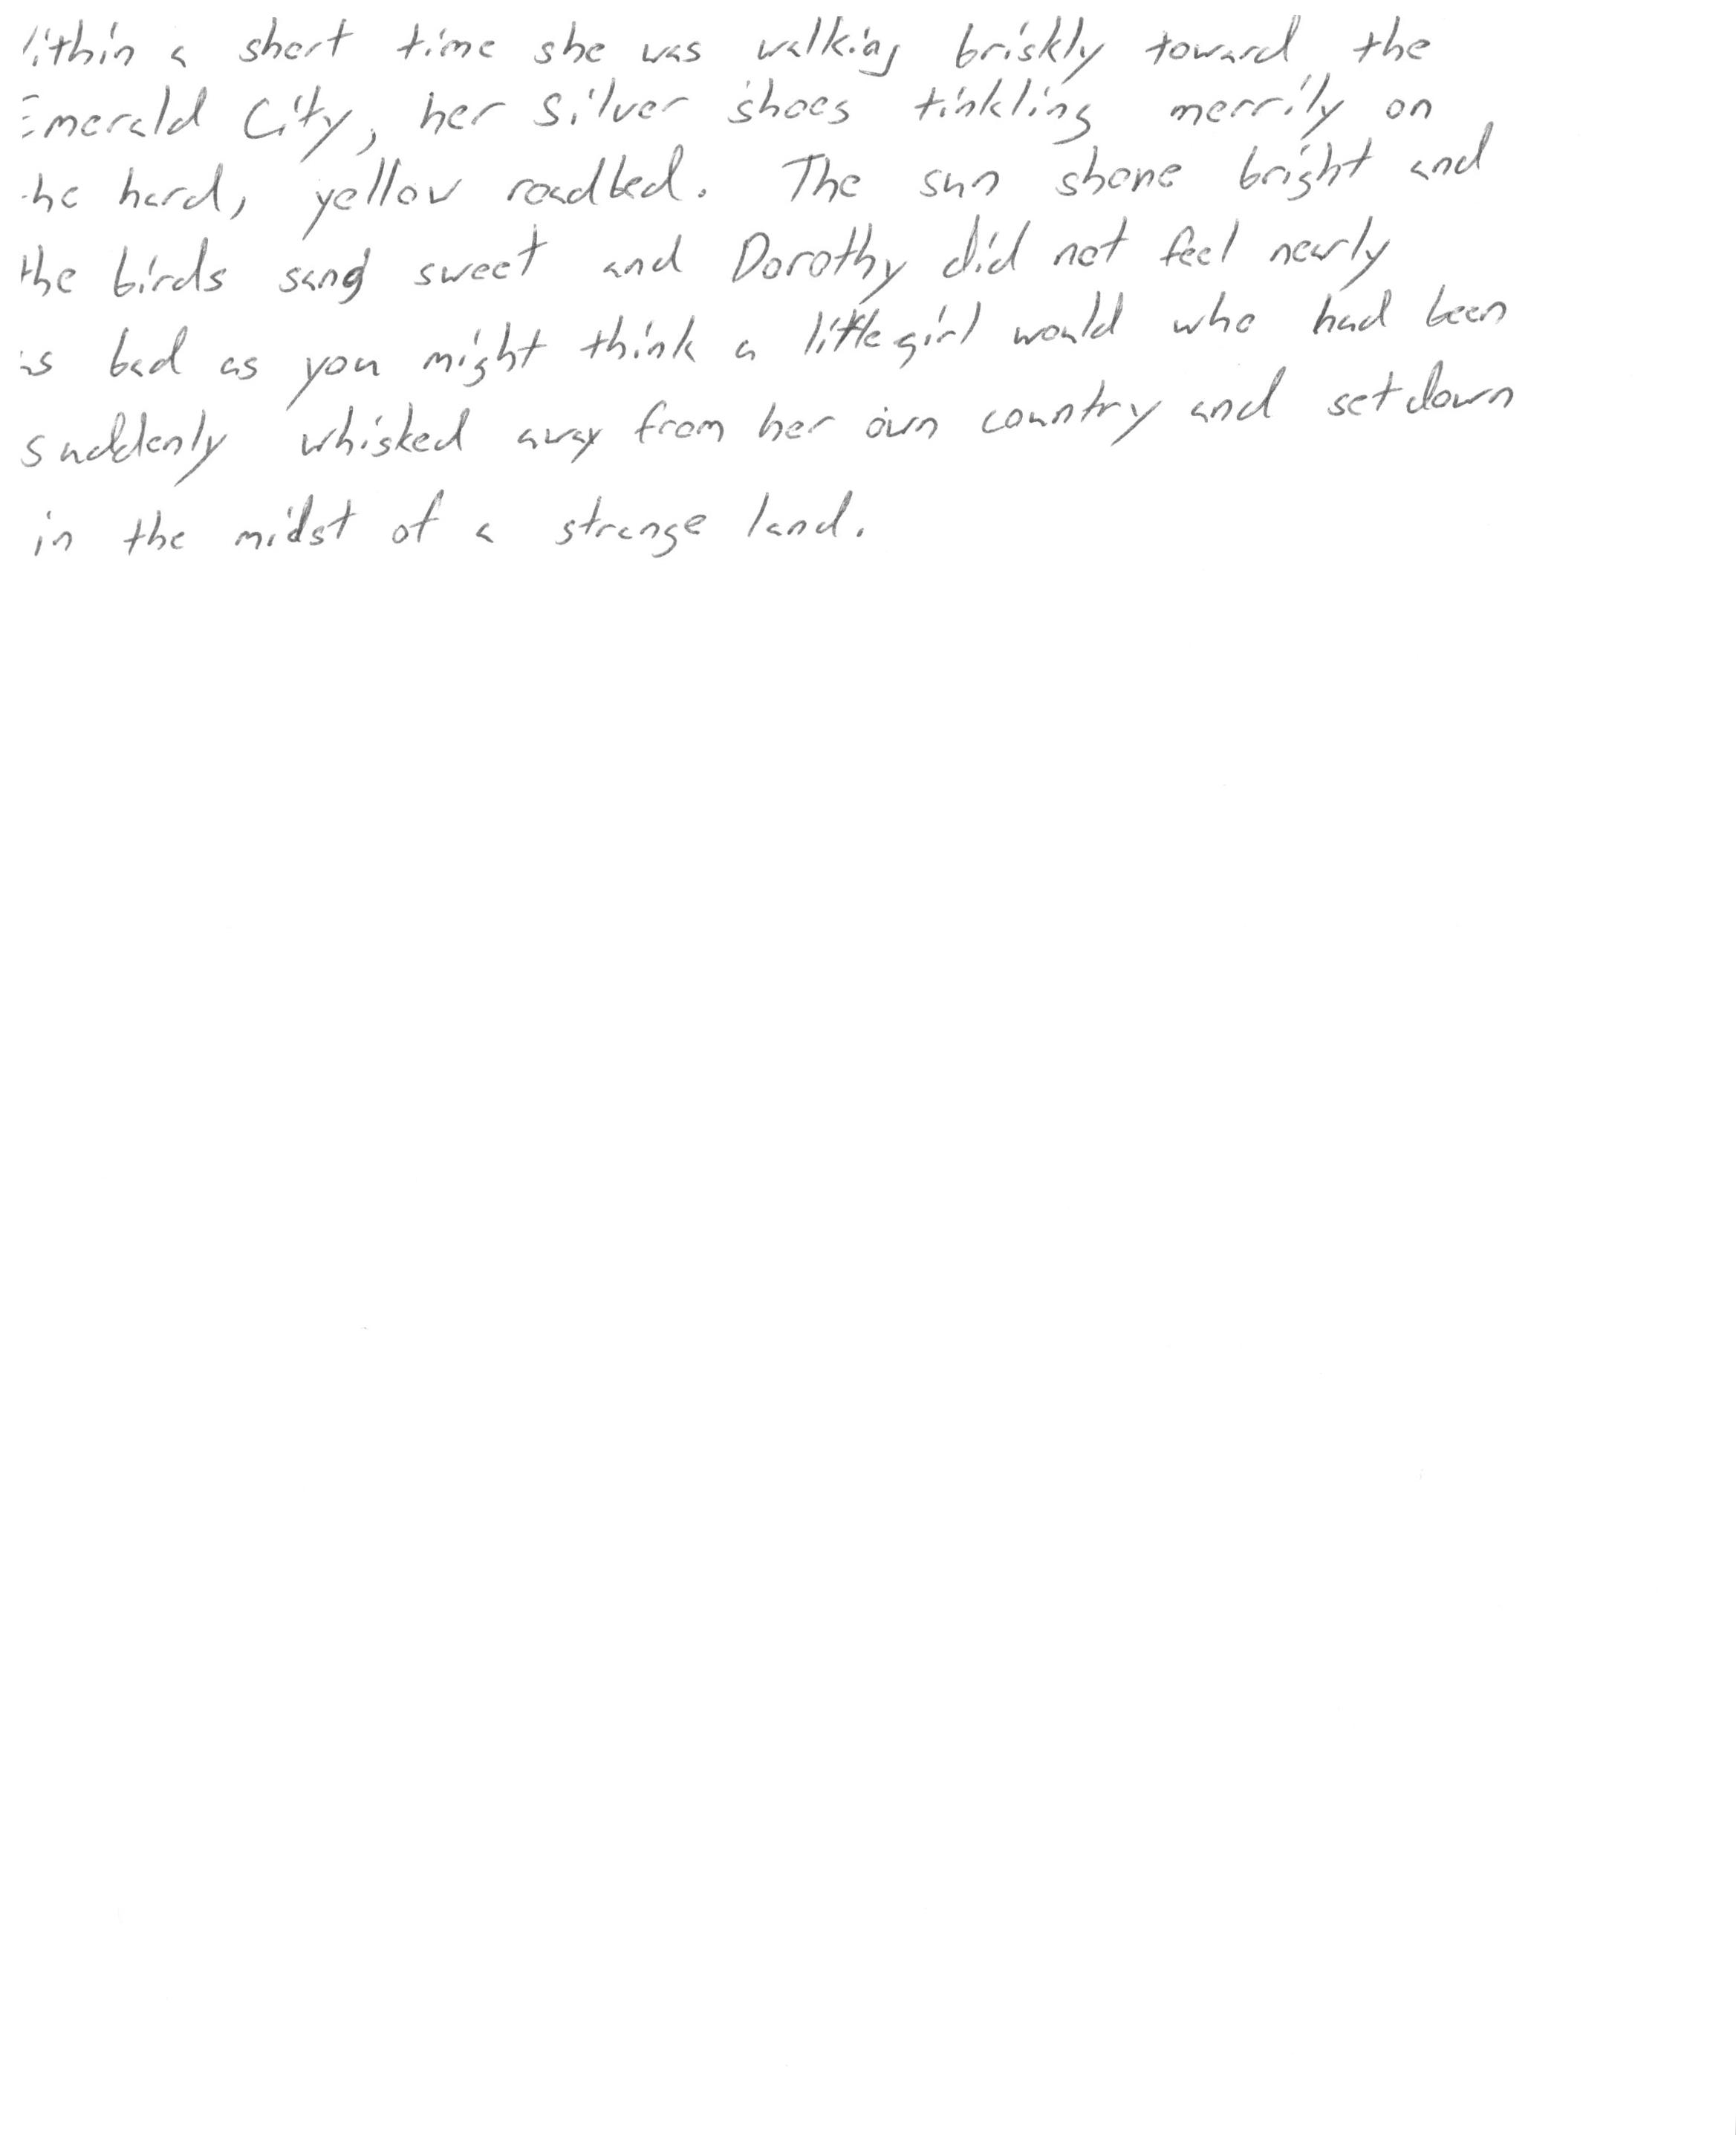 Within a short time she was walking briskly toward the
Emerald City, her Silver shoes tinkling merrily on
the hard, yellow roadbed. The sun shone bright and
the birds sang sweet and Dorothy did not feel nearly
as bad as you might think a little girl would who had been
suddenly whisked away from her own country and set down
in the midst of a strange land.